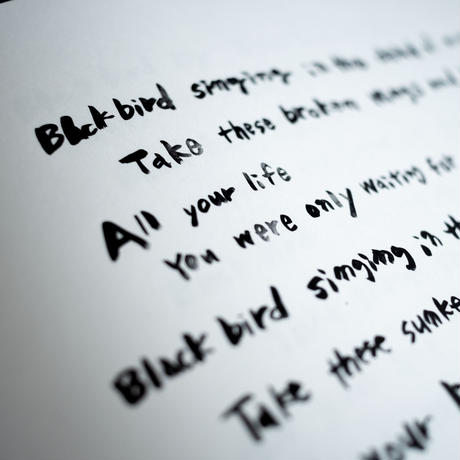 Blackbird singing in the dead of
Take these broken wings and
All your life
You were only waiting for
Blackbird singing in the
Take these sunke
your